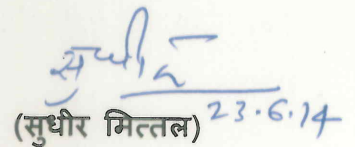 सुधीर
23.6.14
(सुधीर मित्तल)